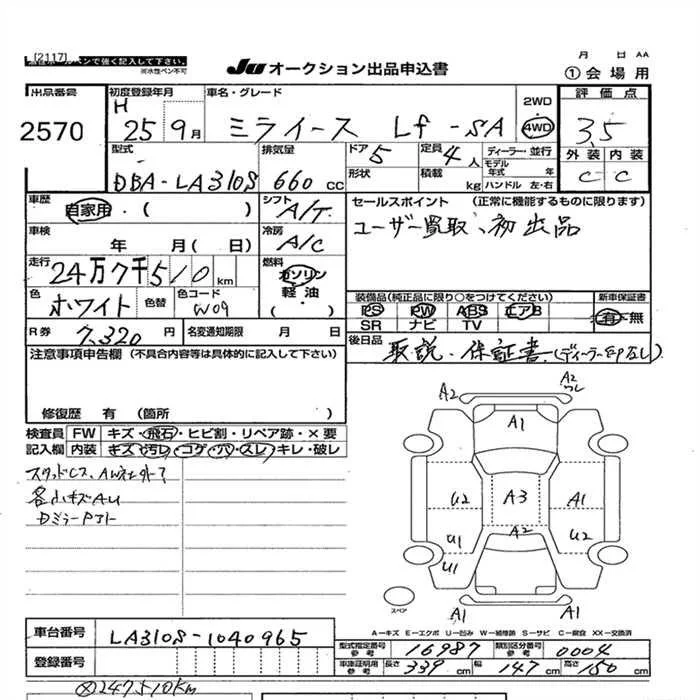 [2117]
ペンで強く記入して下さい。
※水性ペン不可
JU オークション出品申込書
月 日 AA
①会場用
出品番号
2570
初度登録年月
H 25 9月
車名・グレード
ミライース Lf -SA
2WD
4WD
評価点
3.5
外装 内装
C C
型式
DBA-LA310S
排気量
660 cc
ドア 5
定員 4人
ディーラー・並行
モデル年式 年
形状
積載 kg
ハンドル 左・右
車歴
自家用・( )
シフト
A/T
セールスポイント (正常に機能するものに限ります)
ユーザー買取、初出品
車検
年 月( 日)
冷房
A/C
走行
24万7千510km
燃料
ガソリン
軽油
・( )
色
ホワイト
色替
色コード
W09
装備品(純正品に限り○をつけてください)
PS PW ABS エアB
SR ナビ TV
新車保証書
有・無
R券
7,320円
名変通知期限 月 日
後日品
取説・保証書 (ディーラーEPなし)
注意事項申告欄 (不具合内容等は具体的に記入して下さい)
修復歴 有 (箇所 )
検査員
記入欄
FW キズ・飛石・ヒビ割・リペア跡・×要
内装 キズ・汚レ・コゲ・穴・スレ・キレ・破レ
各小キズAU
A2
A2
A1
U2
A3
A1
A2
U1
U2
U1
A1
A1
スペア
A−キズ E−エクボ U−凹み W−補修跡 S−サビ C−腐食 XX−交換済
車台番号
LA310S-1040965
登録番号
型式指定番号 参考 16987
類別区分番号 参考 0004
車庫証明用 参考 長さ 339cm 幅 147cm 高さ 150cm
※247510km